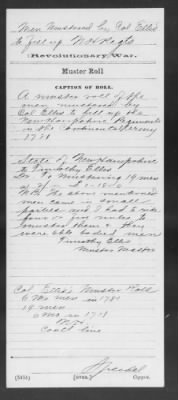 Men Mustered by Col Ellis
to fill up N H Regts
Revolutionary War.
Muster Roll
CAPTION OF ROLL.
A muster roll of the
men mustered by
Col Ellis to fill up the
New Hampshire Regiments
in the Continental Army
1781
State of New Hampshire
to Timothy Ellis
To mustering 19 men
The above mentioned
men came in small
parties and I had to ride
to
muster them & they
were able bodied men
Timothy Ellis
Muster Master
Col Ellis's Muster Roll
6 Mo men in 1781
19 men
6 Mo in 1781
(545i)
Copyist.